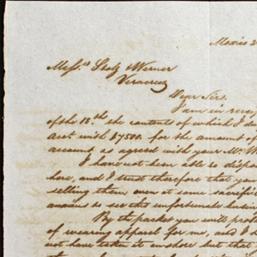 Mexico 2
Messrs. Stolz & Werner
Veracruz
Dear Sirs.
I am in
of the 18th the content of which I
acct with $7500 for the amount of
account as agreed with your Mr. W
I have not been able to dispo
here, and I trust therefore that you
selling them even at some sacrific
anxious to see this unfortunate busin
By the packer you will
of wearing apparel for me, and I
not have taken its enshore but that